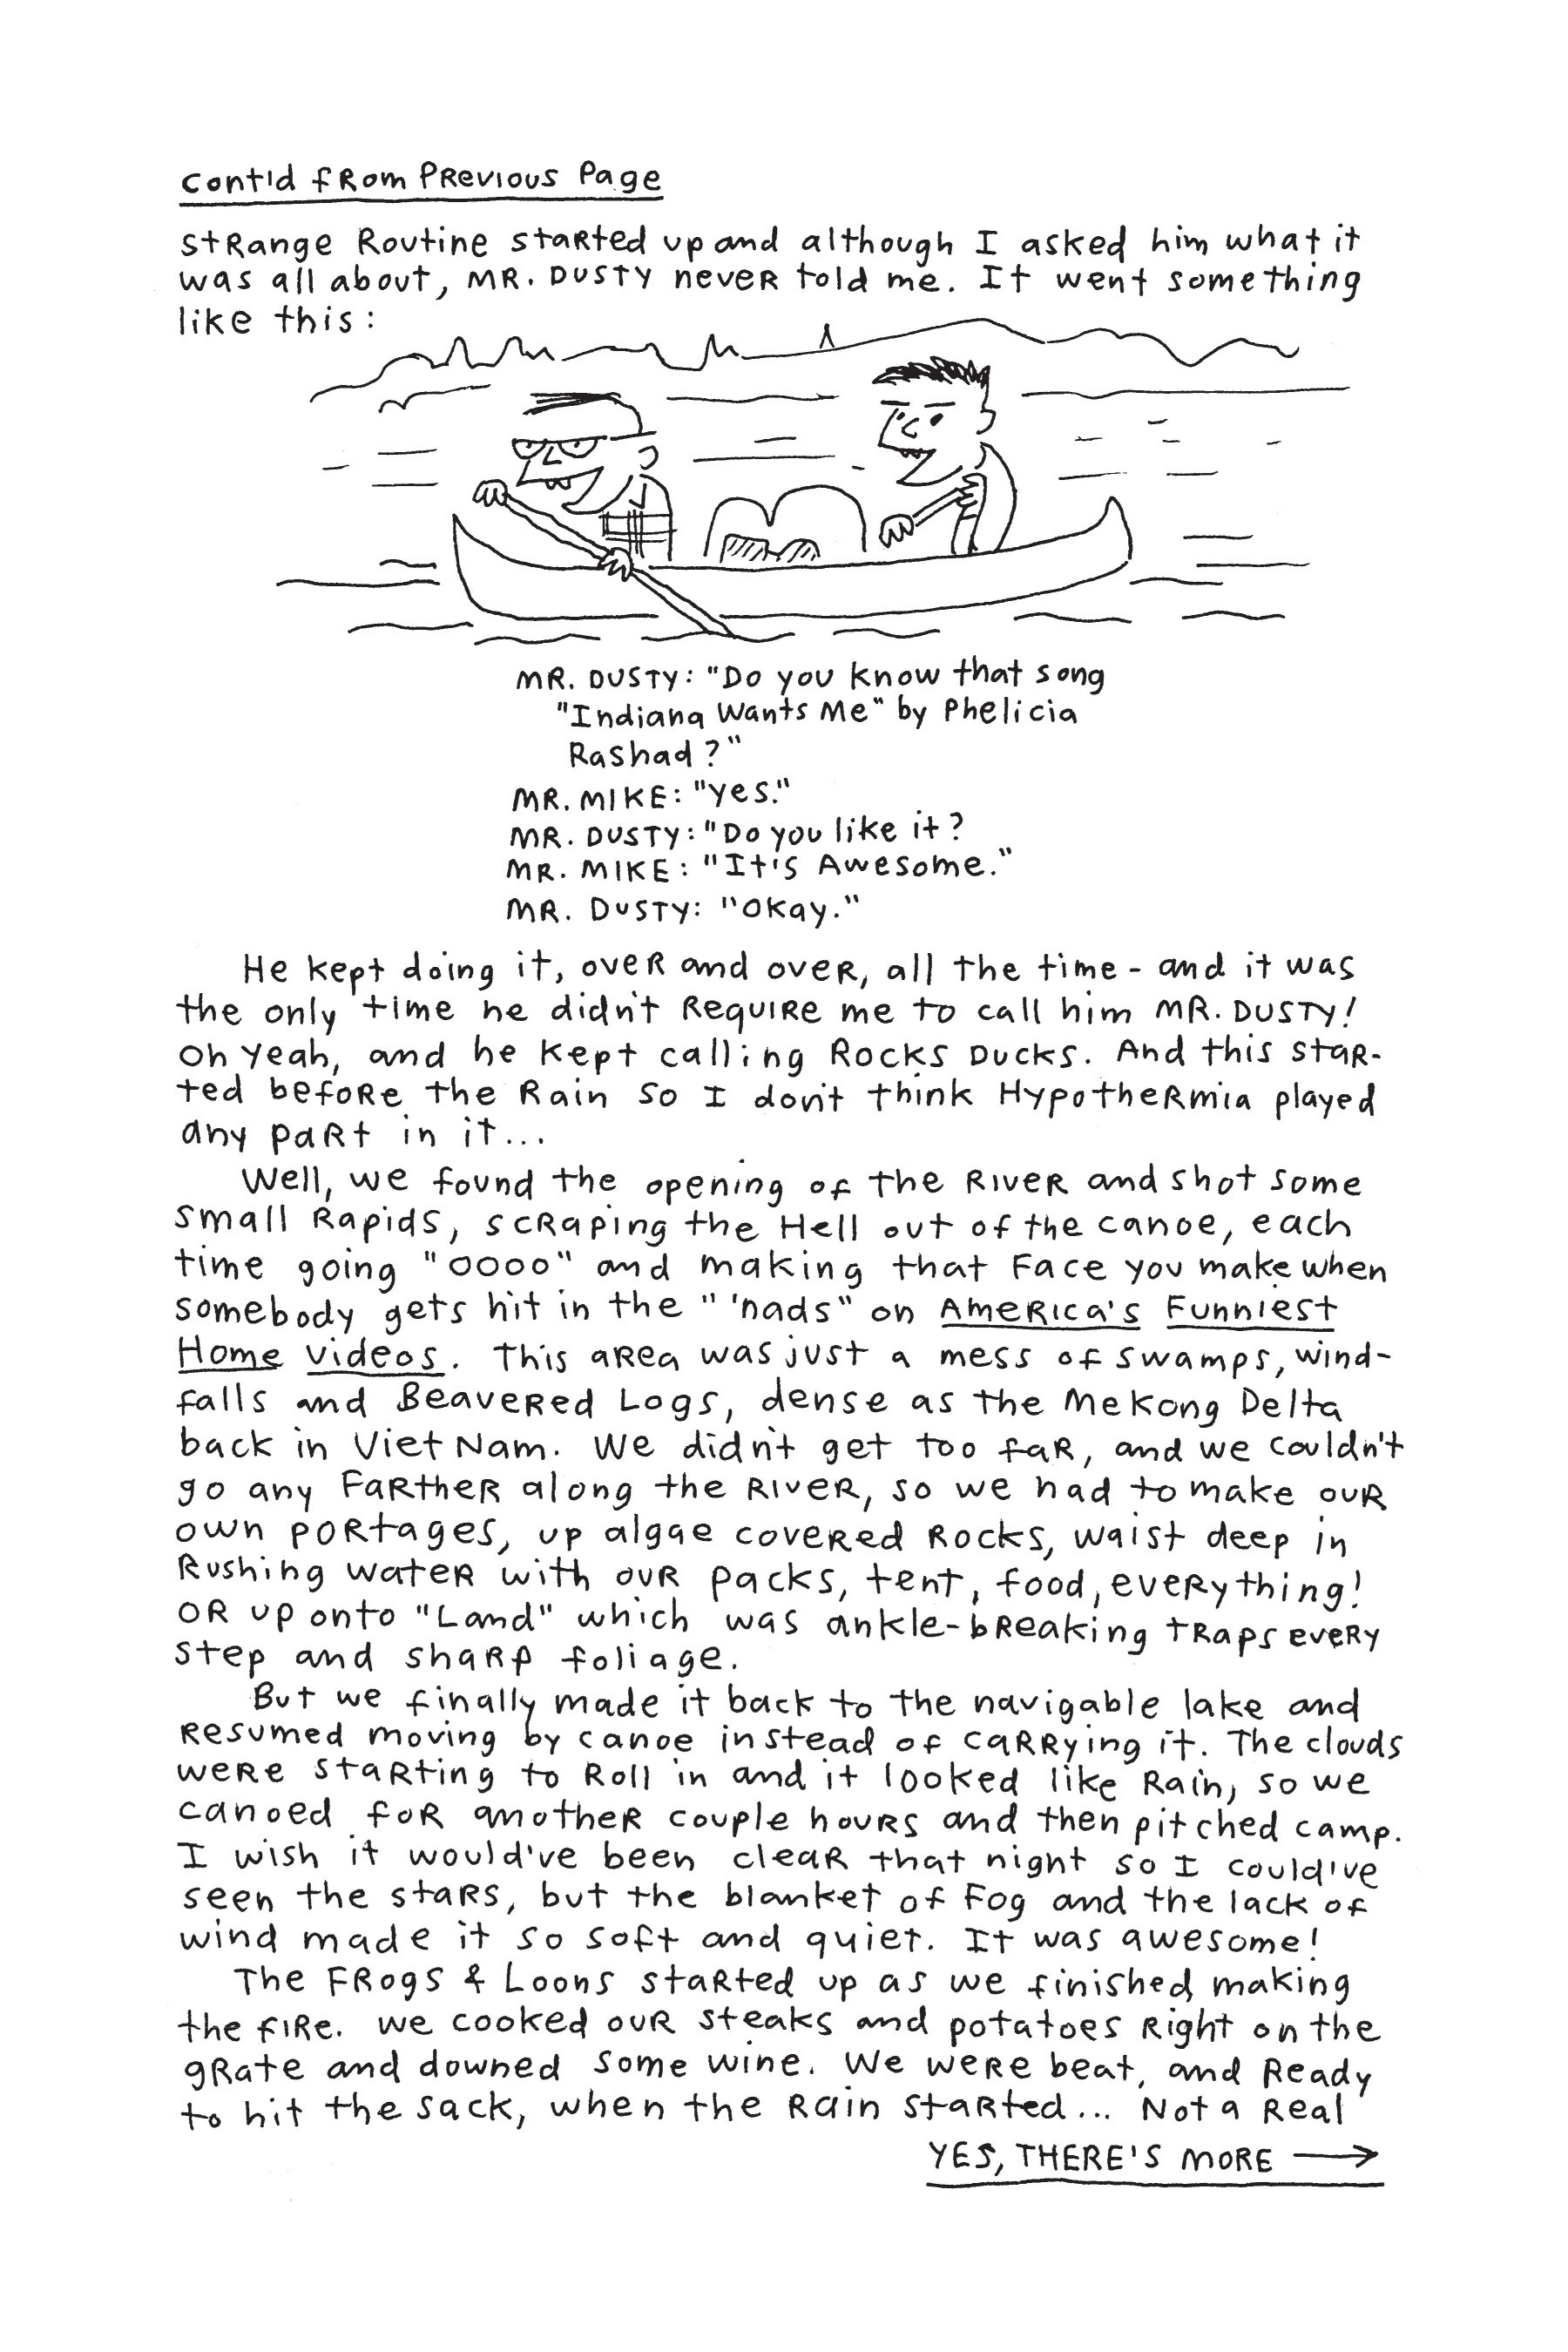 Cont'd from Previous Page
Strange Routine started up and although I asked him what it
was all about, MR. DUSTY never told me. It went something
like this:
MR. DUSTY: "Do you know that song
"Indiana Wants Me" by Phelicia
Rashad?"
MR. MIKE: "Yes."
MR. DUSTY: "Do you like it?
MR. MIKE: "It's Awesome."
MR. DUSTY: "Okay."
He kept doing it, over and over, all the time - and it was
the only time he didn't Require me to call him MR. DUSTY!
Oh Yeah, and he kept calling Rocks Ducks. And this star-
ted before the Rain so I don't think Hypothermia played
any part in it...
Well, we found the opening of the River and shot some
small Rapids, scraping the Hell out of the canoe, each
time going "oooo" and making that Face you make when
somebody gets hit in the " 'nads" on America's Funniest
Home Videos. This area was just a mess of swamps, wind-
falls and Beavered Logs, dense as the Mekong Delta
back in Viet Nam. We didn't get too far, and we couldn't
go any Farther along the River, so we had to make our
own portages, up algae covered Rocks, waist deep in
Rushing water with our packs, tent, food, everything!
Or up onto "Land" which was ankle-breaking traps every
step and sharp foliage.
But we finally made it back to the navigable lake and
Resumed moving by canoe instead of carrying it. The clouds
were starting to Roll in and it looked like Rain, so we
canoed for another couple hours and then pitched camp.
I wish it would've been clear that night so I could've
seen the stars, but the blanket of Fog and the lack of
wind made it so soft and quiet. It was awesome!
The Frogs & Loons started up as we finished making
the fire. We cooked our steaks and potatoes Right on the
grate and downed some wine. We were beat, and Ready
to hit the sack, when the Rain started... Not a Real
YES, THERE'S MORE →